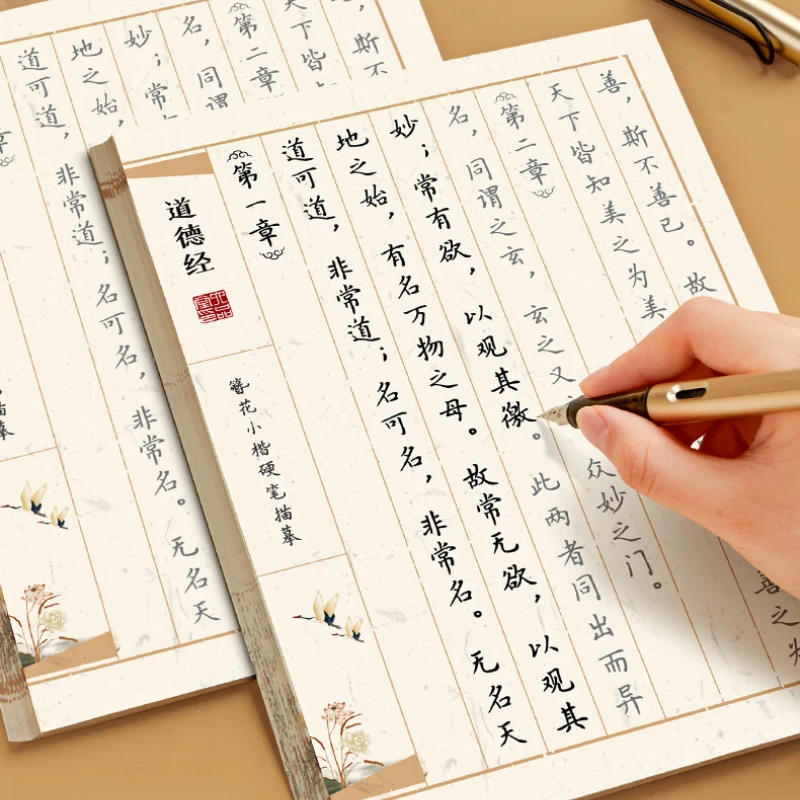 道德经
簪花小楷硬笔描摹
第一章
道可道，非常道；名可名，非常名。无名天
地之始，有名万物之母。故常无欲，以观其
妙；常有欲，以观其徼。此两者同出而异
名，同谓之玄，玄之又 众妙之门。
第二章
天下皆知美之为美 善之为
善，斯不善已。故
章
道可道，非常道；名可名，非常名。无名天
地之始，
妙；常
名，同谓
第二章
天下皆
斯不
描摹